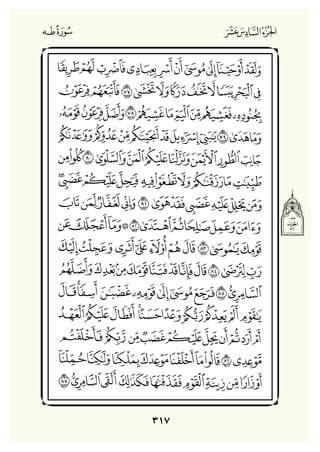 الجُزْءُ السَّادِسَ عَشَرَ سُورَةُ طه
وَلَقَدْ أَوْحَيْنَآ إِلَىٰ مُوسَىٰٓ أَنْ أَسْرِ بِعِبَادِى فَٱضْرِبْ لَهُمْ طَرِيقًا
فِى ٱلْبَحْرِ يَبَسًا لَّا تَخَٰفُ دَرَكًا وَلَا تَخْشَىٰ ٧٧ فَأَتْبَعَهُمْ فِرْعَوْنُ
بِجُنُودِهِۦ فَغَشِيَهُم مِّنَ ٱلْيَمِّ مَا غَشِيَهُمْ ٧٨ وَأَضَلَّ فِرْعَوْنُ قَوْمَهُۥ
وَمَا هَدَىٰ ٧٩ يَٰبَنِىٓ إِسْرَٰٓءِيلَ قَدْ أَنجَيْنَٰكُم مِّنْ عَدُوِّكُمْ وَوَٰعَدْنَٰكُمْ
جَانِبَ ٱلطُّورِ ٱلْأَيْمَنَ وَنَزَّلْنَا عَلَيْكُمُ ٱلْمَنَّ وَٱلسَّلْوَىٰ ٨٠ كُلُوا۟ مِن
طَيِّبَٰتِ مَا رَزَقْنَٰكُمْ وَلَا تَطْغَوْا۟ فِيهِ فَيَحِلَّ عَلَيْكُمْ غَضَبِى ۖ
وَمَن يَحْلِلْ عَلَيْهِ غَضَبِى فَقَدْ هَوَىٰ ٨١ وَإِنِّى لَغَفَّارٌ لِّمَن تَابَ
وَءَامَنَ وَعَمِلَ صَٰلِحًا ثُمَّ ٱهْتَدَىٰ ٨٢ ۞ وَمَآ أَعْجَلَكَ عَن
قَوْمِكَ يَٰمُوسَىٰ ٨٣ قَالَ هُمْ أُو۟لَآءِ عَلَىٰٓ أَثَرِى وَعَجِلْتُ إِلَيْكَ
رَبِّ لِتَرْضَىٰ ٨٤ قَالَ فَإِنَّا قَدْ فَتَنَّا قَوْمَكَ مِنۢ بَعْدِكَ وَأَضَلَّهُمُ
ٱلسَّامِرِىُّ ٨٥ فَرَجَعَ مُوسَىٰٓ إِلَىٰ قَوْمِهِۦ غَضْبَٰنَ أَسِفًا ۚ قَالَ
يَٰقَوْمِ أَلَمْ يَعِدْكُمْ رَبُّكُمْ وَعْدًا حَسَنًا ۚ أَفَطَالَ عَلَيْكُمُ ٱلْعَهْدُ
أَمْ أَرَدتُّمْ أَن يَحِلَّ عَلَيْكُمْ غَضَبٌ مِّن رَّبِّكُمْ فَأَخْلَفْتُم
مَّوْعِدِى ٨٦ قَالُوا۟ مَآ أَخْلَفْنَا مَوْعِدَكَ بِمَلْكِنَا وَلَٰكِنَّا حُمِّلْنَآ
أَوْزَارًا مِّن زِينَةِ ٱلْقَوْمِ فَقَذَفْنَٰهَا فَكَذَٰلِكَ أَلْقَى ٱلسَّامِرِىُّ ٨٧
٣١٧